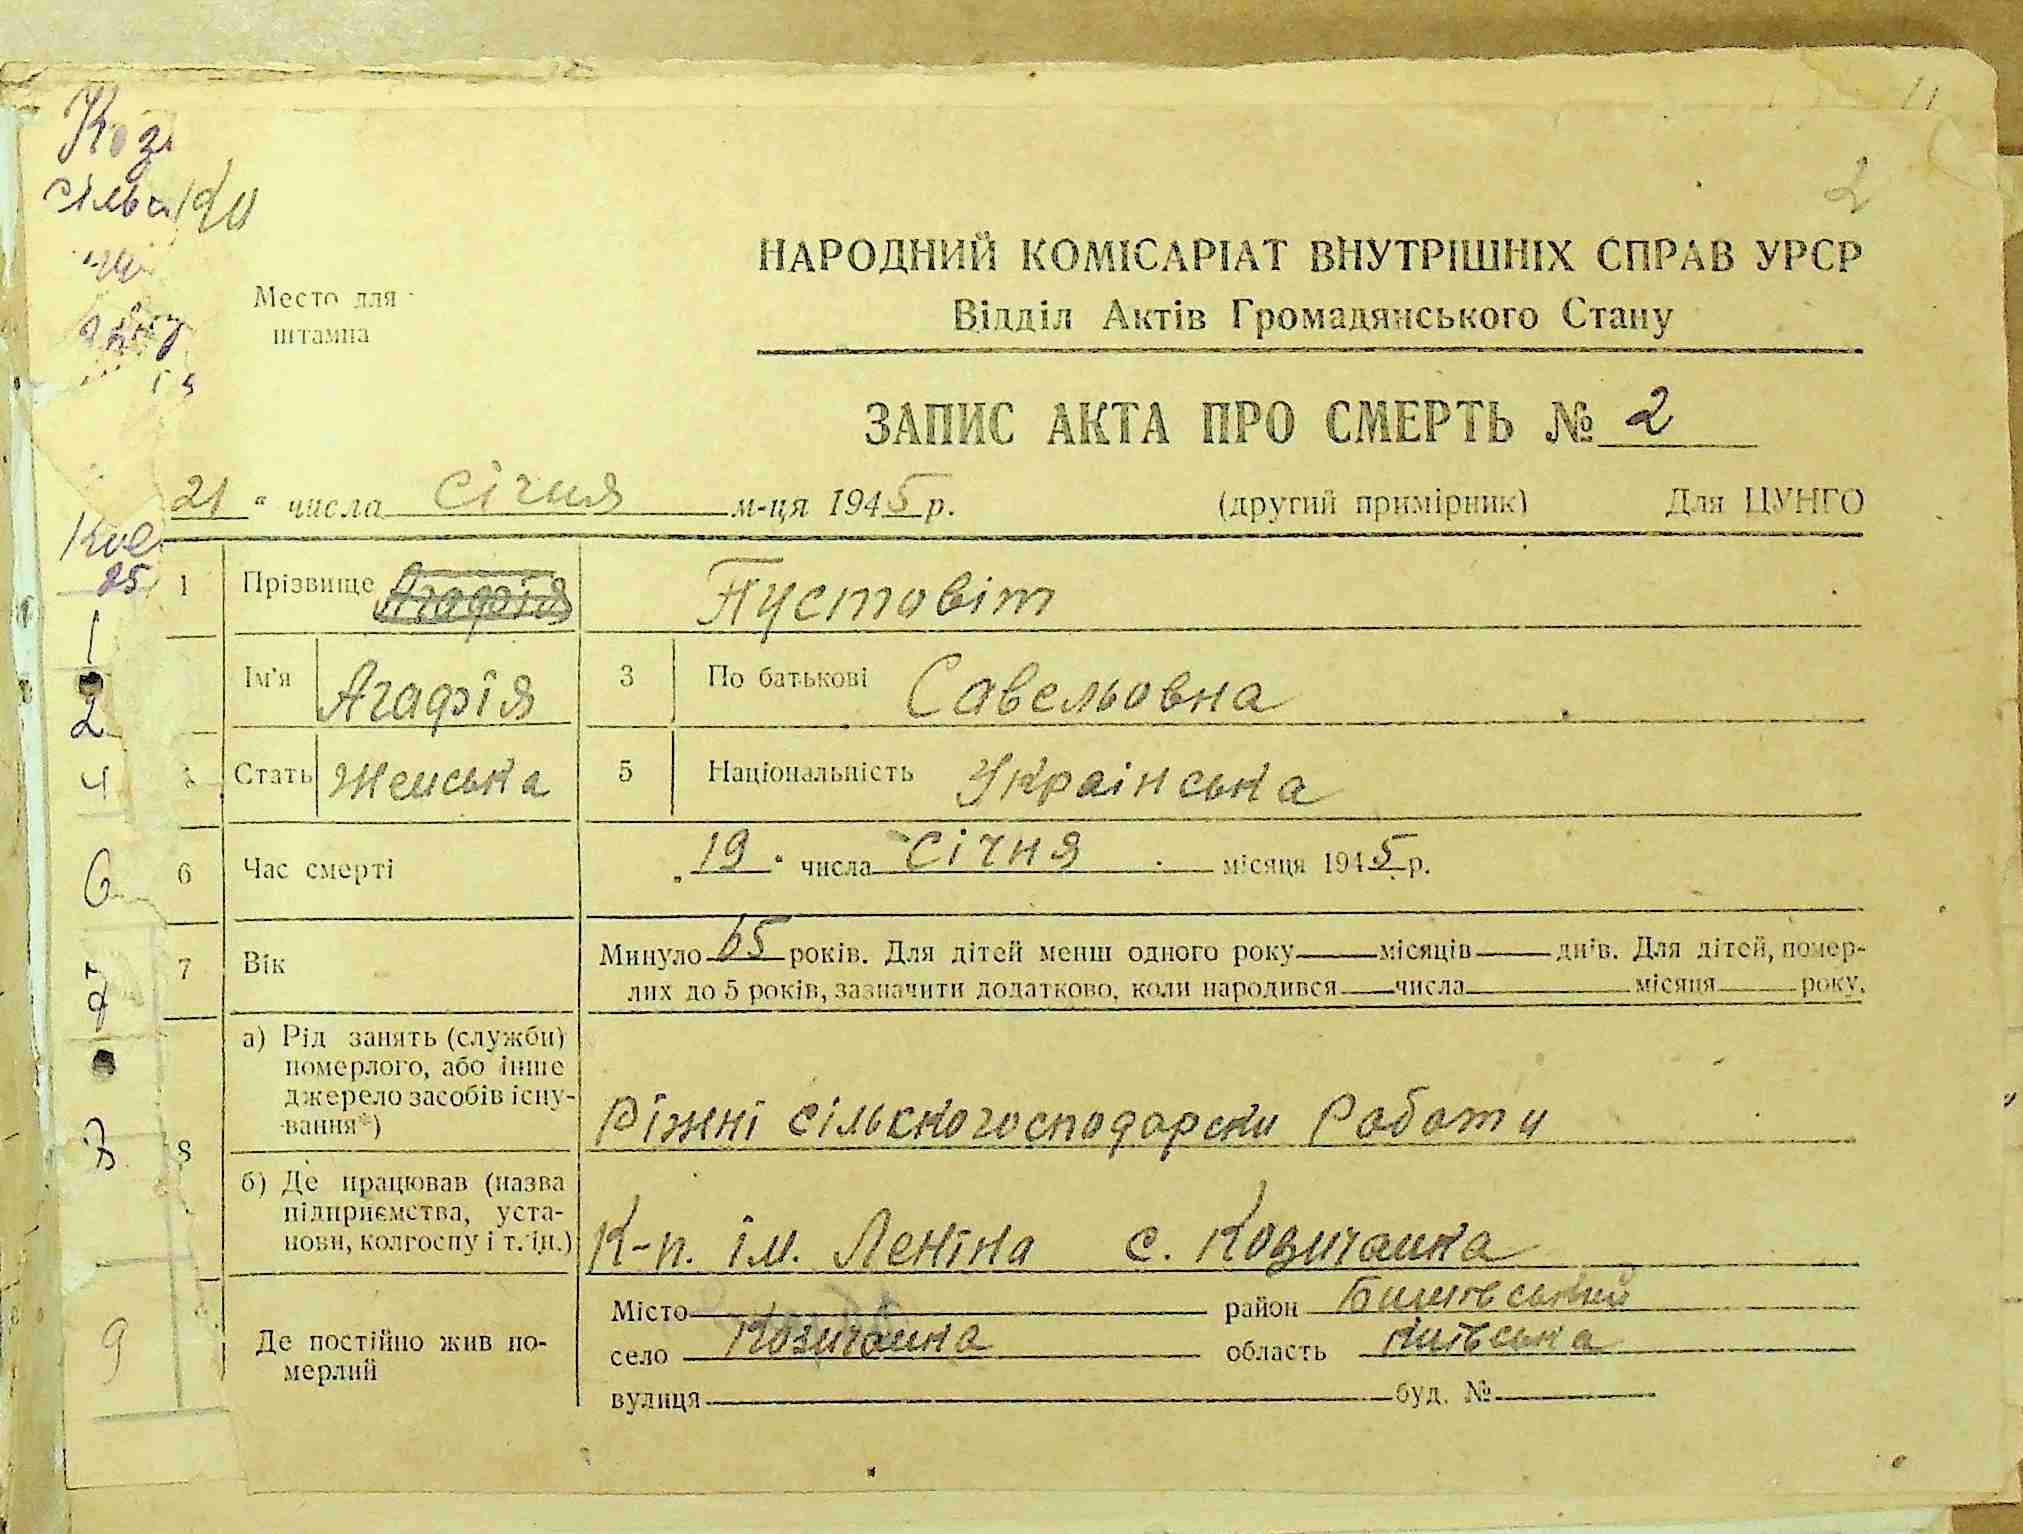 Коз
сільс
2
Место для
штампа
НАРОДНИЙ КОМІСАРІАТ ВНУТРІШНІХ СПРАВ УРСР
Відділ Актів Громадянського Стану
ЗАПИС АКТА ПРО СМЕРТЬ № 2
21 " числа січня м-ця 1945 р. (другий примірник) Для ЦУНГО
1 Прізвище Агафія Пустовіт
Ім'я Агафія 3 По батькові Савельовна
Стать Женська 5 Національність Українська
6 Час смерті " 19 " числа січня місяця 1945 р.
7 Вік Минуло 65 років. Для дітей менш одного року місяців днів. Для дітей, помер-
лих до 5 років, зазначити додатково, коли народився числа місяця року.
8 а) Рід занять (служби)
померлого, або інше
джерело засобів існу-
вання*)
Ріжні сільскогосподарски работи
б) Де працював (назва
підприємства, уста-
нови, колгоспу і т. ін.)
К-п. ім. Леніна с. Козичанка
Де постійно жив по-
мерлий
Місто район Бишівський
село Козичанка область Київська
вулиця буд. №
85
1
2
4
6
7
8
9